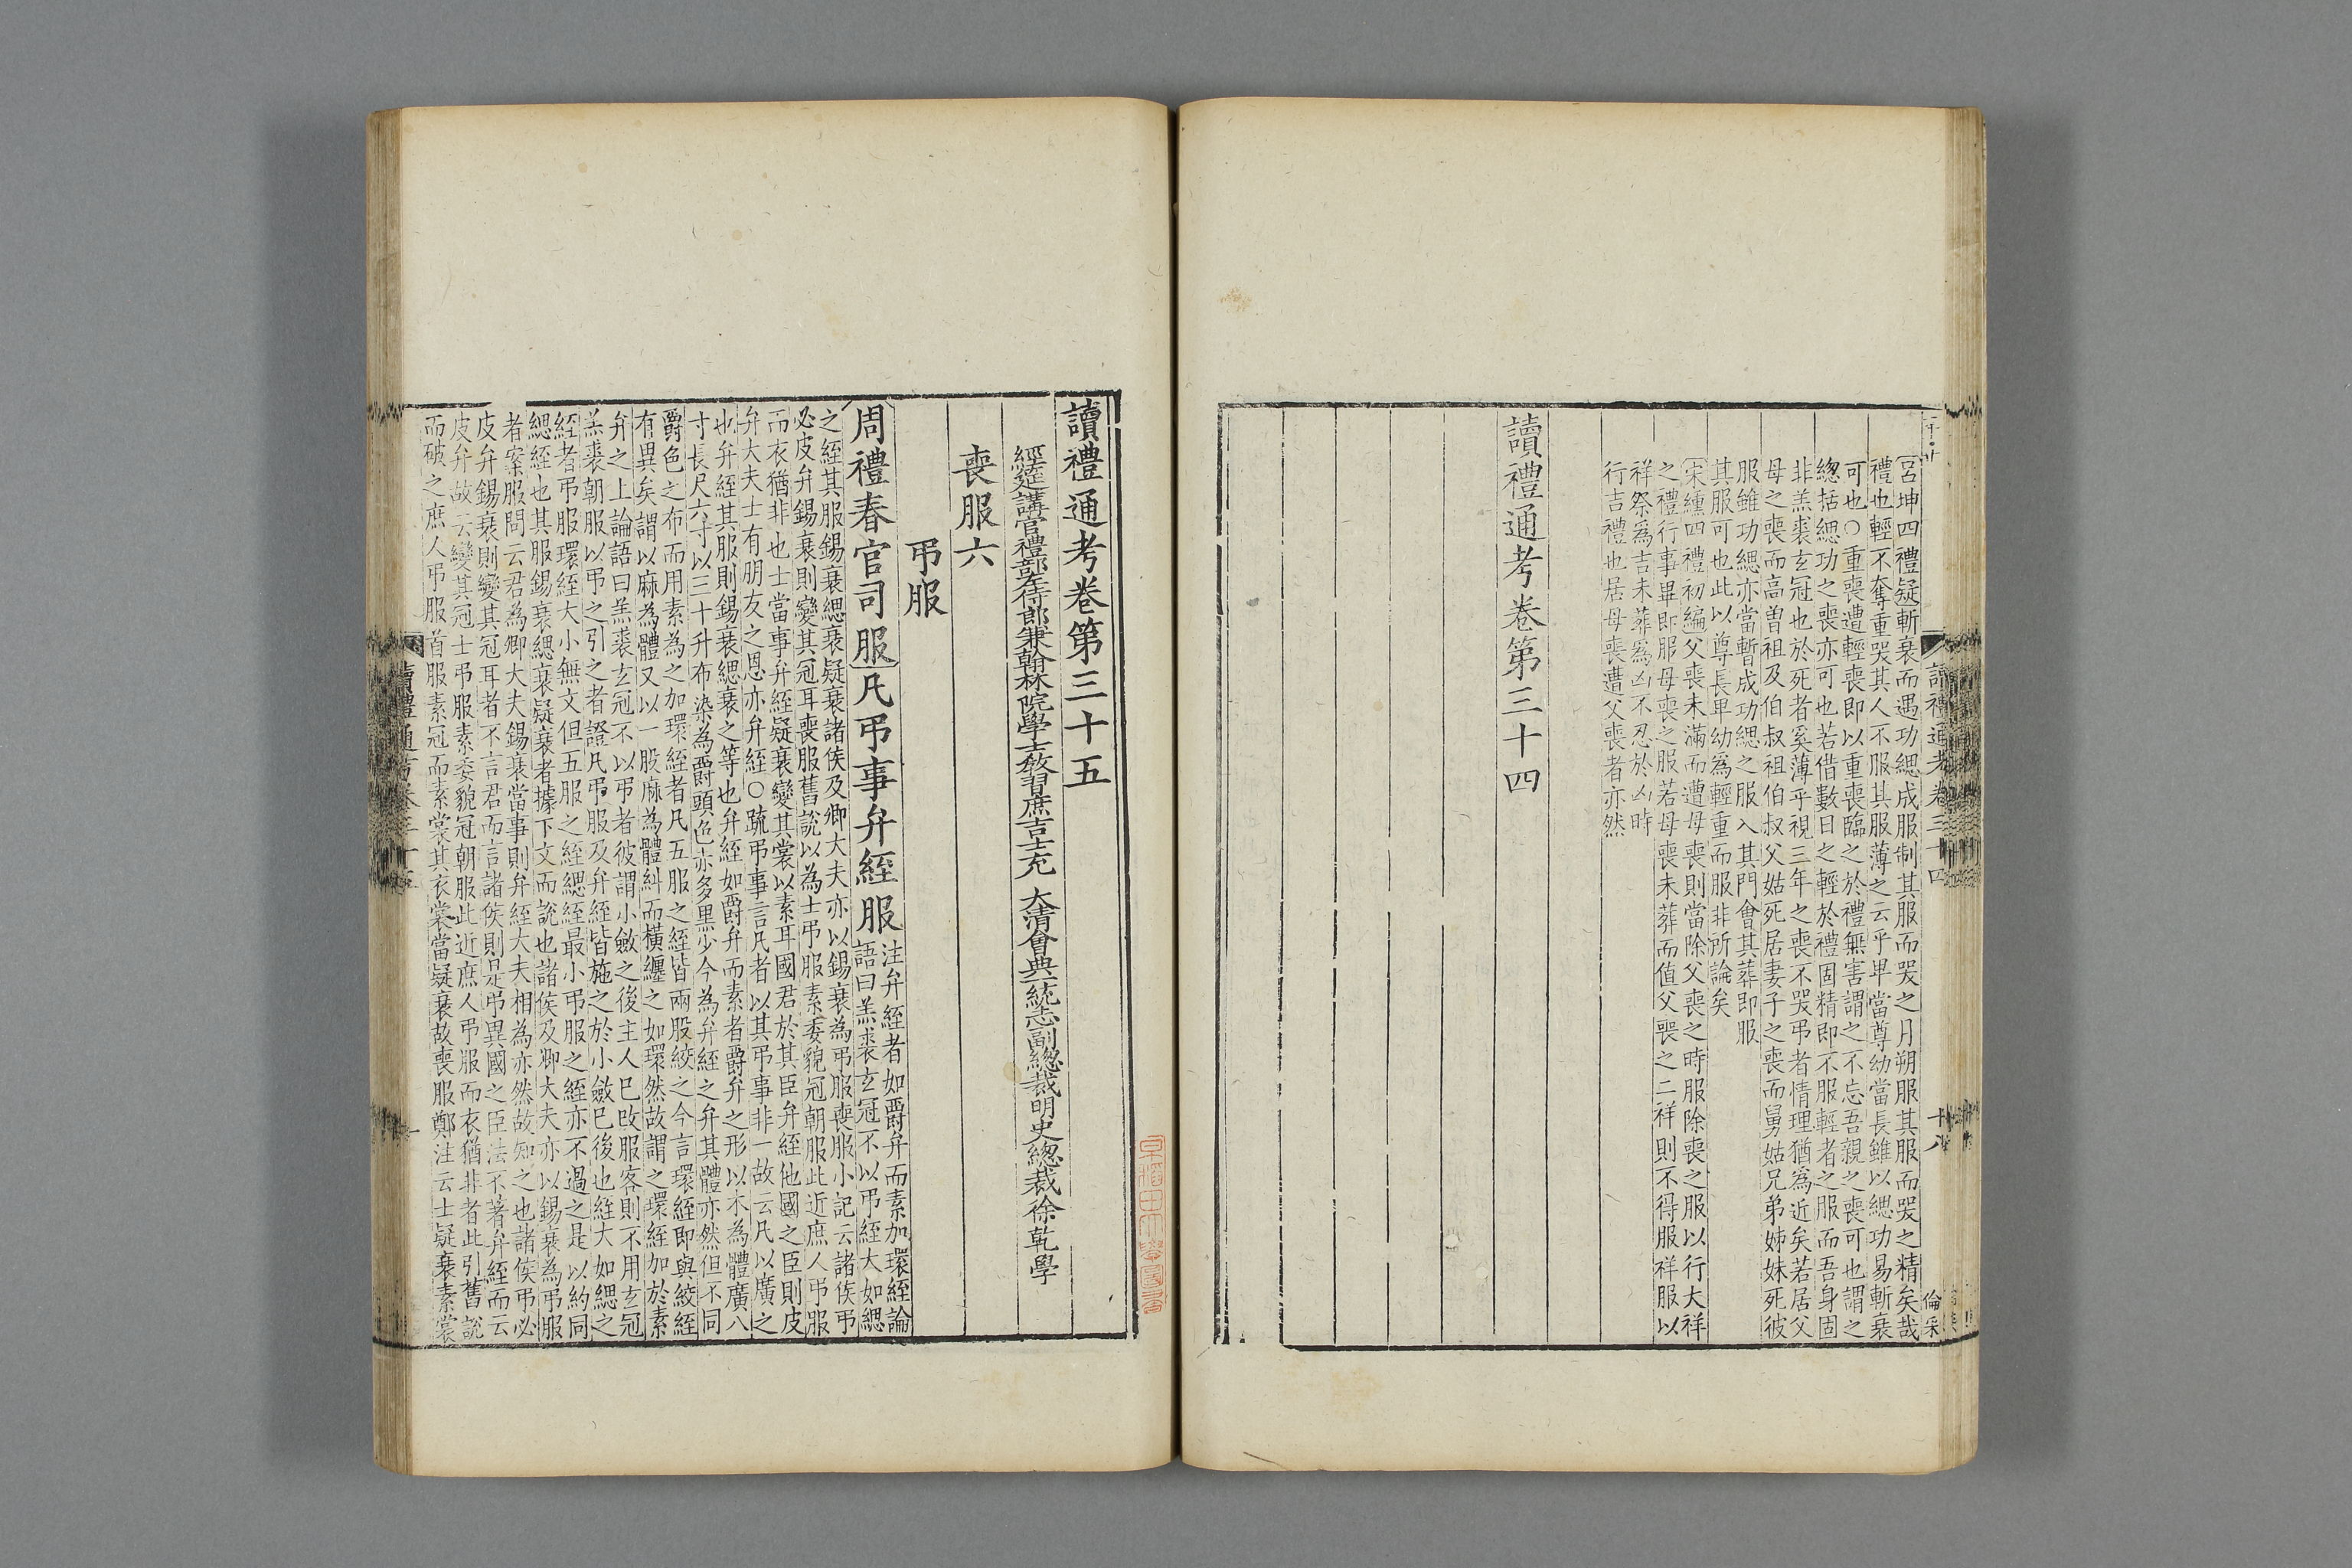 呂坤四禮疑斬衰而遇功緦成服制其服而哭之月朔服其服而哭之精矣哉
禮也輕不奪重哭其人不服其服薄之云乎畢當尊幼當長雖以緦功易斬衰
可也○重喪遭輕喪即以重喪臨之於禮無害謂之不忘吾親之喪可也謂之
緦括緦功之喪亦可也若借數日之輕於禮固精即不服輕者之服而吾身固
非羔裘玄冠也於死者奚薄乎視三年之喪不哭弔者情理猶為近矣若居父
母之喪而高曾祖及伯叔祖伯叔父姑死居妻子之喪而舅姑兄弟姊妹死彼
服雖功緦亦當暫成功緦之服入其門會其葬即服
其服可也此以尊長卑幼為輕重而服非所論矣
宋纁四禮初編父喪未滿而遭母喪則當除父喪之時服除喪之服以行大祥
之禮行事畢即服母喪之服若母喪未葬而值父喪之二祥則不得服祥服以
祥祭爲吉未葬爲凶不忍於凶時
行吉禮也居母喪遭父喪者亦然
讀禮通考卷第三十四
讀禮通考卷三十四
十八
倫采
讀禮通考卷第三十五
經筵講官禮部左侍郎兼翰林院學士教習庶吉士充 大清會典一統志副總裁明史總裁徐乾學
喪服六
弔服
周禮春官司服凡弔事弁絰服
注弁絰者如爵弁而素加環絰論
語曰羔裘玄冠不以弔絰大如緦
之絰其服錫衰緦衰疑衰諸侯及卿大夫亦以錫衰為弔服喪服小記云諸侯弔
必皮弁錫衰則變其冠耳喪服舊說以為士弔服素委貌冠朝服此近庶人弔服
而衣猶非也士當事弁絰疑衰變其裳以素耳國君於其臣弁絰他國之臣則皮
弁大夫士有朋友之恩亦弁絰○疏弔事言凡者以其弔事非一故云凡以廣之
也弁絰其服則錫衰緦衰之等也弁絰如爵弁而素者爵弁之形以木為體廣八
寸長尺六寸以三十升布染為爵頭色赤多黑少今為弁絰之弁其體亦然但不同
爵色之布而用素為之加環絰者凡五服之絰皆兩股絞之今言環絰即與絞絰
有異矣謂以麻為體又以一股麻為體糾而橫纏之如環然故謂之環絰加於素
弁之上論語曰羔裘玄冠不以弔者彼謂小斂之後主人已改服客則不用玄冠
羔裘朝服以弔之引之者證凡弔服及弁絰皆施之於小斂已後也絰大如緦之
絰者弔服環絰大小無文但五服之絰緦絰最小弔服之絰亦不過之是以約同
緦絰也其服錫衰緦衰疑衰者據下文而說也諸侯及卿大夫亦以錫衰為弔服
者案服問云君為卿大夫錫衰當事則弁絰大夫相為亦然故知之也諸侯弔必
皮弁錫衰則變其冠耳者不言君而言諸侯則是弔異國之臣法不著弁絰而云
皮弁故云變其冠士弔服素委貌冠朝服此近庶人弔服而衣猶非者此引舊說
而破之庶人弔服首服素冠而素裳其衣裳當疑衰故喪服鄭注云士疑衰素裳
讀禮通考卷三十五
一
早稻田大學圖書